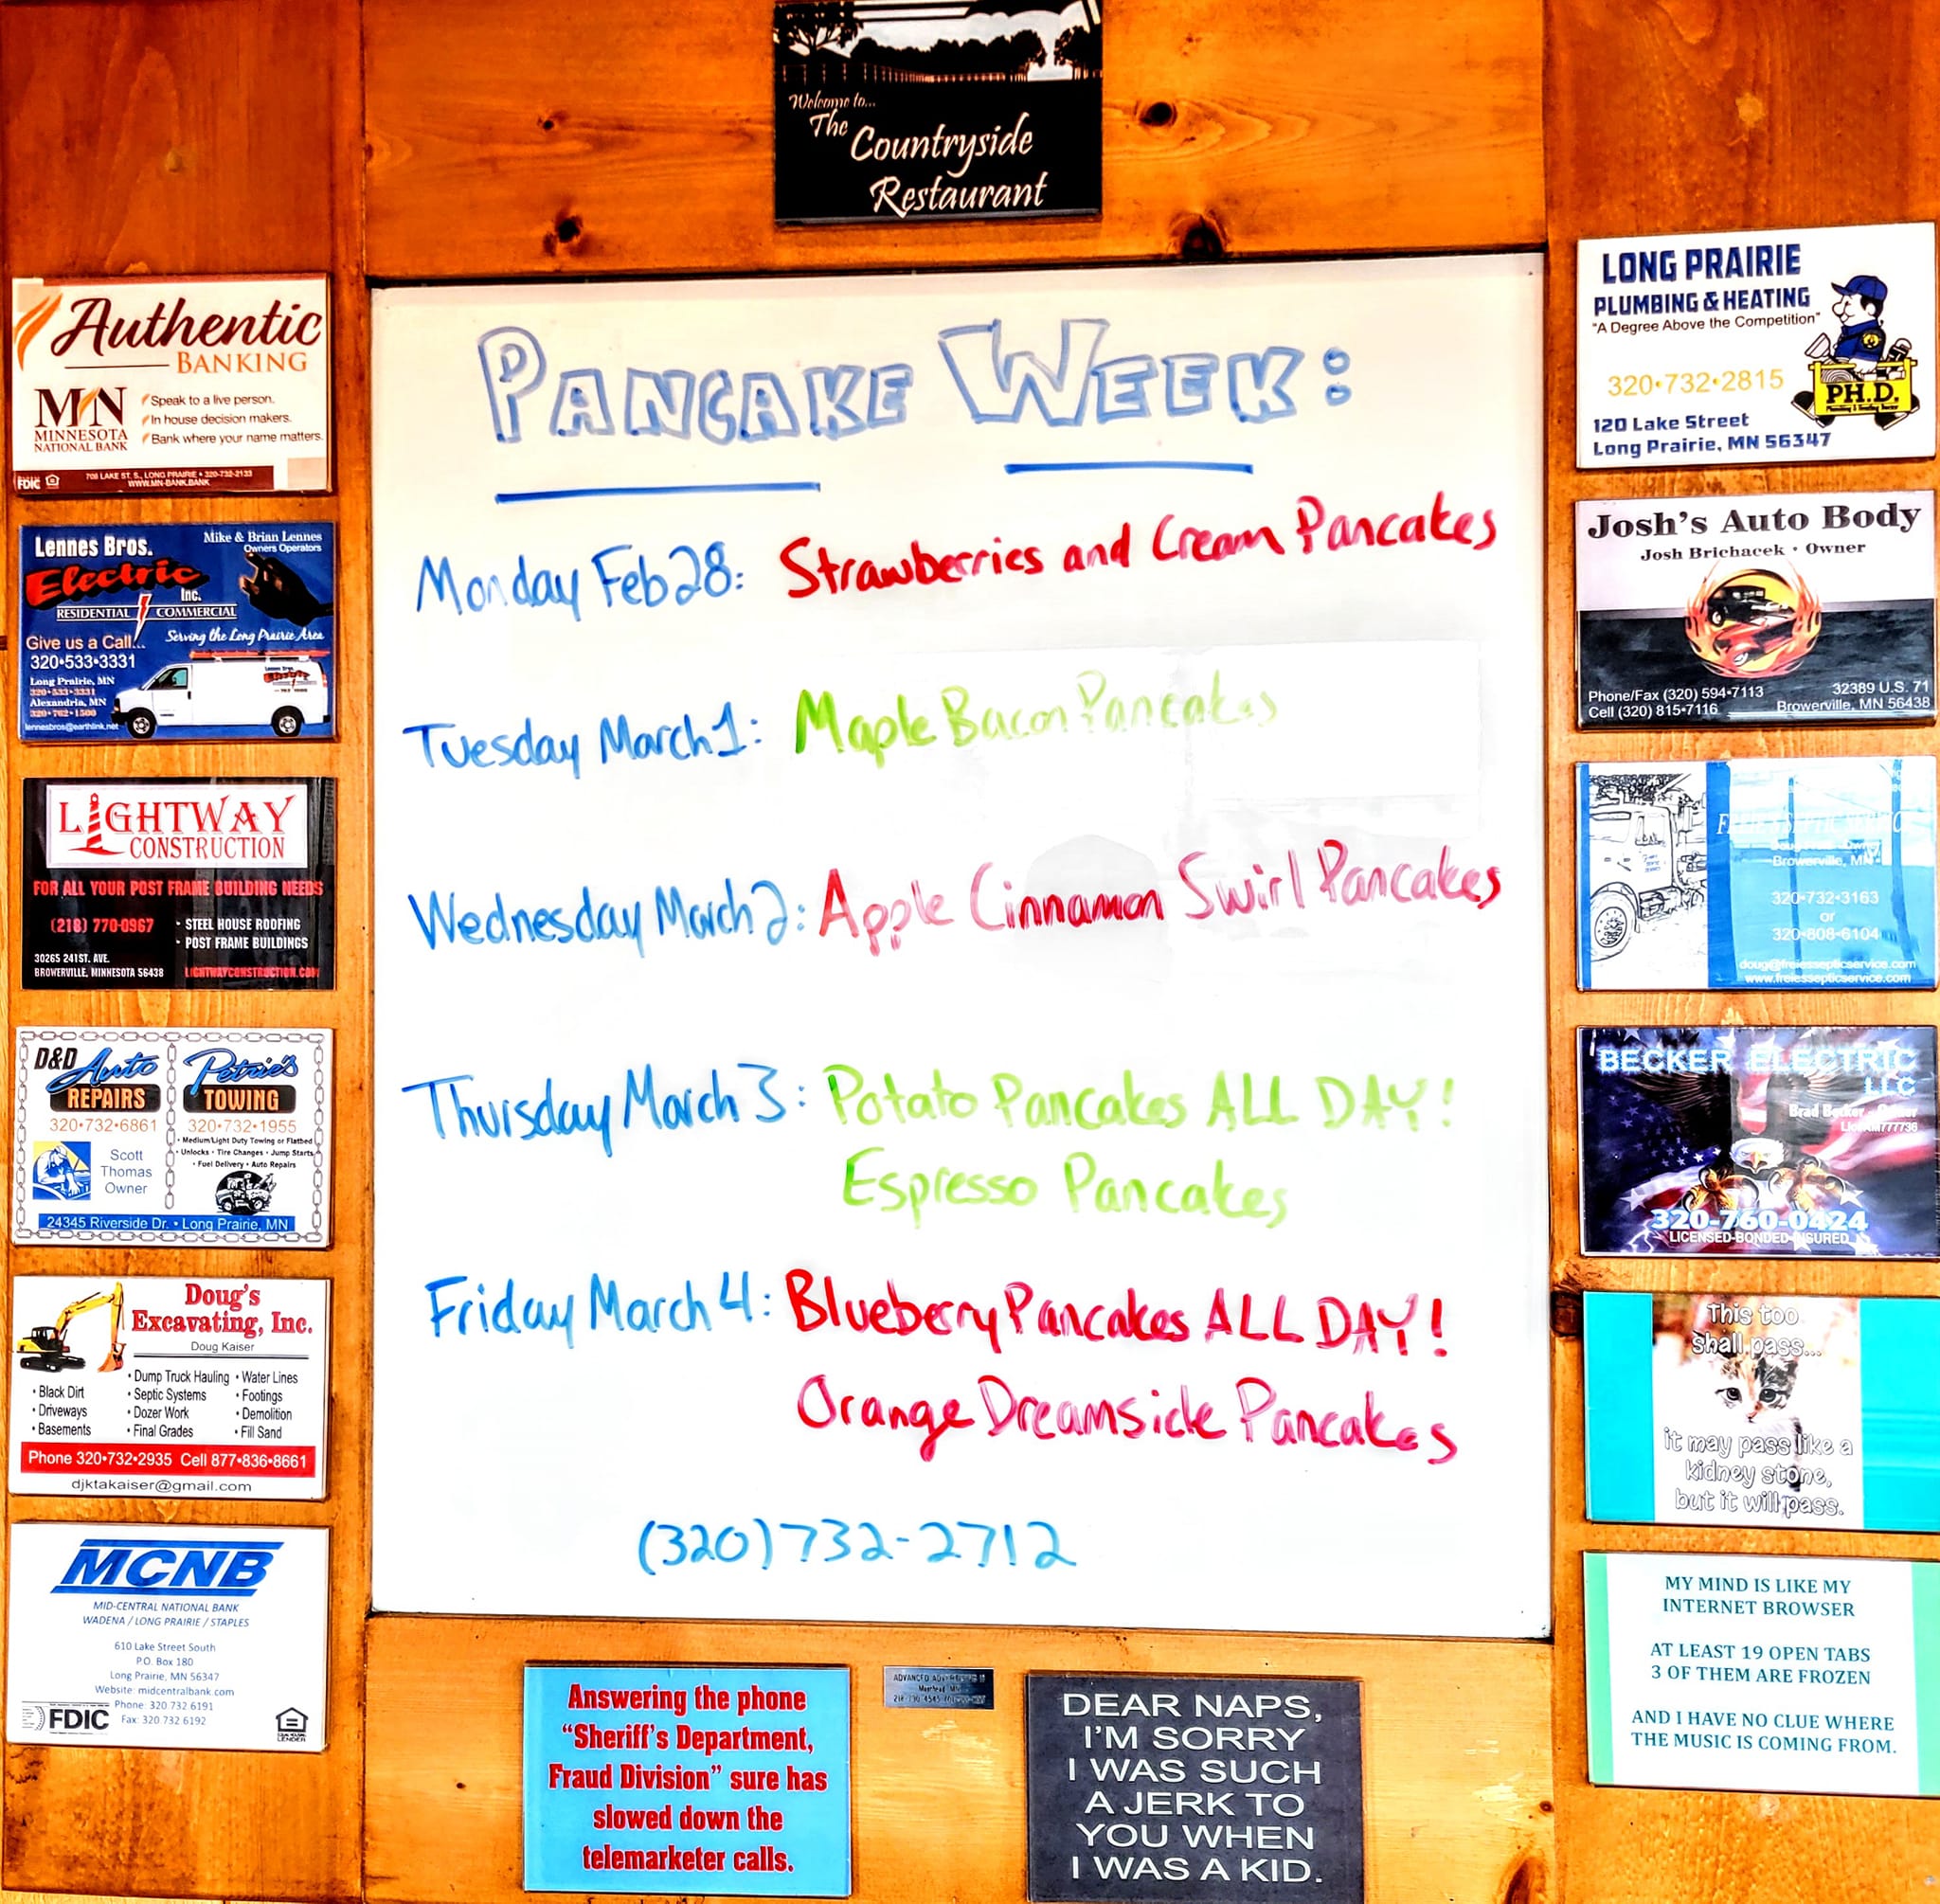 Welcome to...
The Countryside
Restaurant
PANCAKE WEEK:
Monday Feb 28: Strawberries and Cream Pancakes
Tuesday March 1: Maple Bacon Pancakes
Wednesday March 2: Apple Cinnamon Swirl Pancakes
Thursday March 3: Potato Pancakes ALL DAY!
Espresso Pancakes
Friday March 4: Blueberry Pancakes ALL DAY!
Orange Dreamsicle Pancakes
(320) 732-2712
Authentic
BANKING
MN
MINNESOTA
NATIONAL BANK
Speak to a live person.
In house decision makers.
Bank where your name matters.
FDIC
708 LAKE ST. S., LONG PRAIRIE • 320-732-2133
WWW.MN-BANK.BANK
Lennes Bros.
Electric
Inc.
Mike & Brian Lennes
Owners Operators
RESIDENTIAL COMMERCIAL
Serving the Long Prairie Area
Give us a Call...
320•533•3331
Long Prairie, MN
320•533•3331
Alexandria, MN
320•762•1500
lennesbros@earthlink.net
Lennes Bros.
Electric
LIGHTWAY
CONSTRUCTION
FOR ALL YOUR POST FRAME BUILDING NEEDS
(218) 770-0967
• STEEL HOUSE ROOFING
• POST FRAME BUILDINGS
30265 241ST. AVE.
BROWERVILLE, MINNESOTA 56438
LIGHTWAYCONSTRUCTION.COM
D&D Auto
REPAIRS
320•732•6861
Scott
Thomas
Owner
Petrie's
TOWING
320•732•1955
• Medium/Light Duty Towing or Flatbed
• Unlocks • Tire Changes • Jump Starts
• Fuel Delivery • Auto Repairs
24345 Riverside Dr. • Long Prairie, MN
Doug's
Excavating, Inc.
Doug Kaiser
• Black Dirt
• Driveways
• Basements
• Dump Truck Hauling
• Septic Systems
• Dozer Work
• Final Grades
• Water Lines
• Footings
• Demolition
• Fill Sand
Phone 320•732•2935 Cell 877•836•8661
djktakaiser@gmail.com
MCNB
MID-CENTRAL NATIONAL BANK
WADENA / LONG PRAIRIE / STAPLES
610 Lake Street South
P.O. Box 180
Long Prairie, MN 56347
Website: midcentralbank.com
Phone: 320.732.6191
Fax: 320.732.6192
FDIC
LENDER
LONG PRAIRIE
PLUMBING & HEATING
"A Degree Above the Competition"
320•732•2815
120 Lake Street
Long Prairie, MN 56347
PH.D.
Josh's Auto Body
Josh Brichacek • Owner
Phone/Fax (320) 594•7113
Cell (320) 815•7116
32389 U.S. 71
Browerville, MN 56438
Browerville, MN
320-732-3163
or
320-808-6104
doug@freiessepticservice.com
www.freiessepticservice.com
BECKER ELECTRIC
LLC
Brad Becker - Owner
320-760-0424
LICENSED-BONDED-INSURED
This too
shall pass...
it may pass like a
kidney stone,
but it will pass.
MY MIND IS LIKE MY
INTERNET BROWSER
AT LEAST 19 OPEN TABS
3 OF THEM ARE FROZEN
AND I HAVE NO CLUE WHERE
THE MUSIC IS COMING FROM.
Answering the phone
"Sheriff's Department,
Fraud Division" sure has
slowed down the
telemarketer calls.
DEAR NAPS,
I'M SORRY
I WAS SUCH
A JERK TO
YOU WHEN
I WAS A KID.